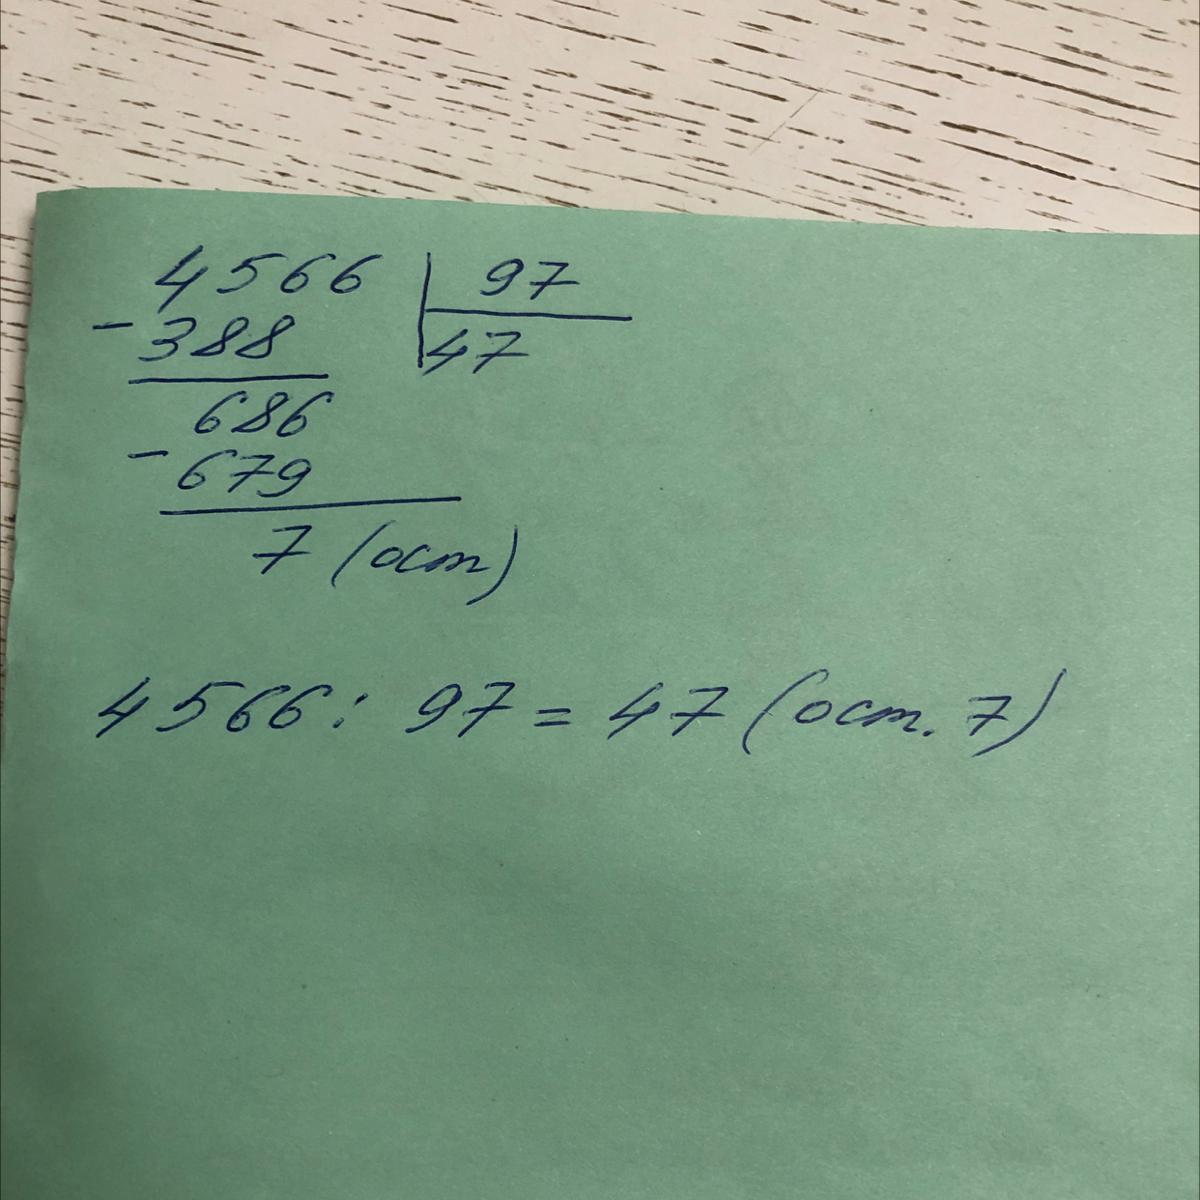 4566 | 97
- 388 | 47
686
- 679
7 (ост)
4566 : 97 = 47 (ост. 7)